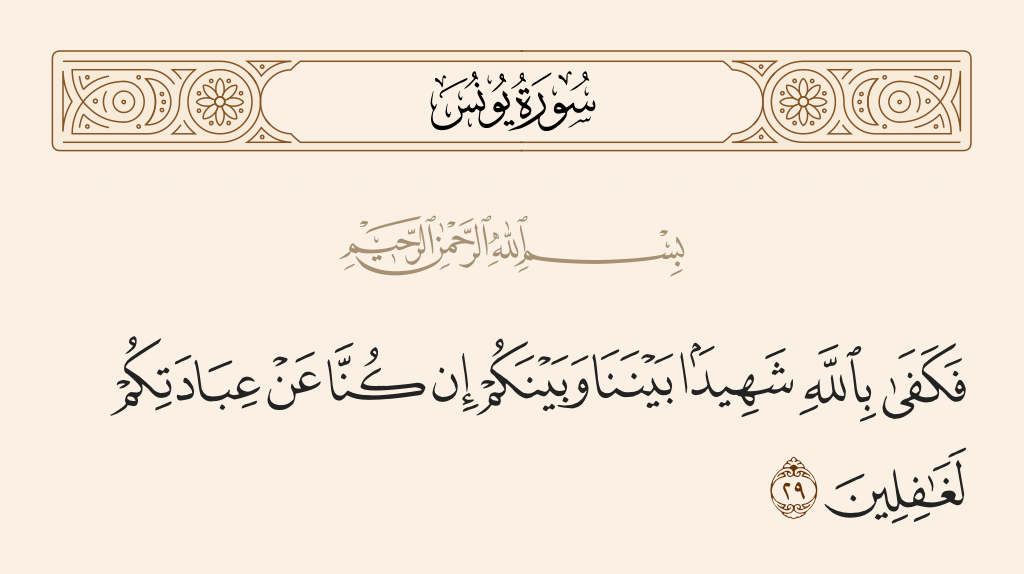 سُورَةُ يُونُسَ
بِسْمِ ٱللَّهِ ٱلرَّحْمَٰنِ ٱلرَّحِيمِ
فَكَفَىٰ بِٱللَّهِ شَهِيدًۢا بَيْنَنَا وَبَيْنَكُمْ إِن كُنَّا عَنْ عِبَادَتِكُمْ
لَغَٰفِلِينَ ٢٩